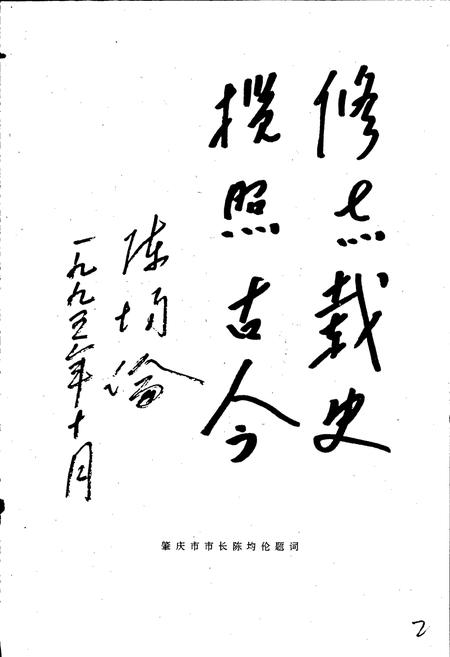 修志载史
揽照古今
陈均伦
一九九五年十月
肇庆市市长陈均伦题词
2